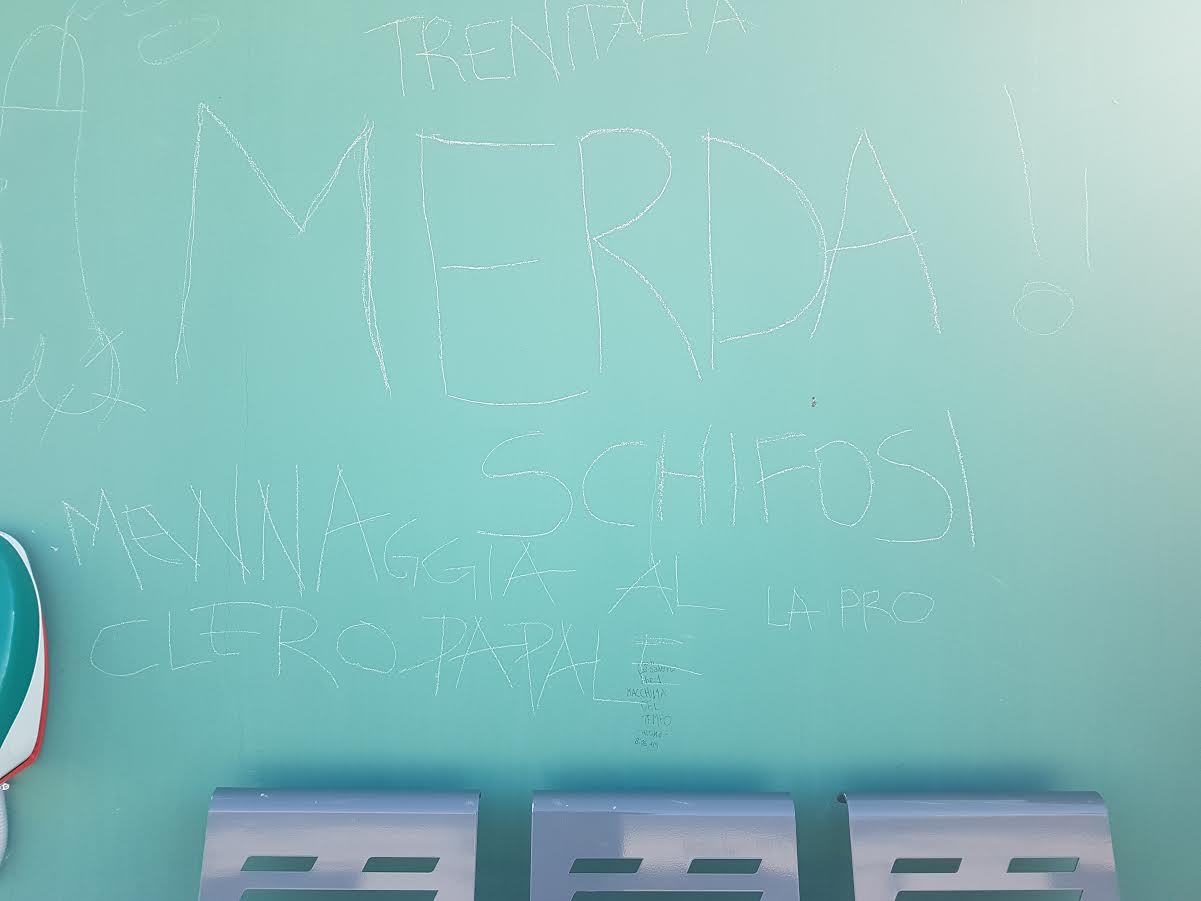 TRENITALIA
MERDA !
SCHIFOSI
MANNAGGIA AL LA PRO
CLERO PAPALE
MACCHINA
DEL
TEMPO